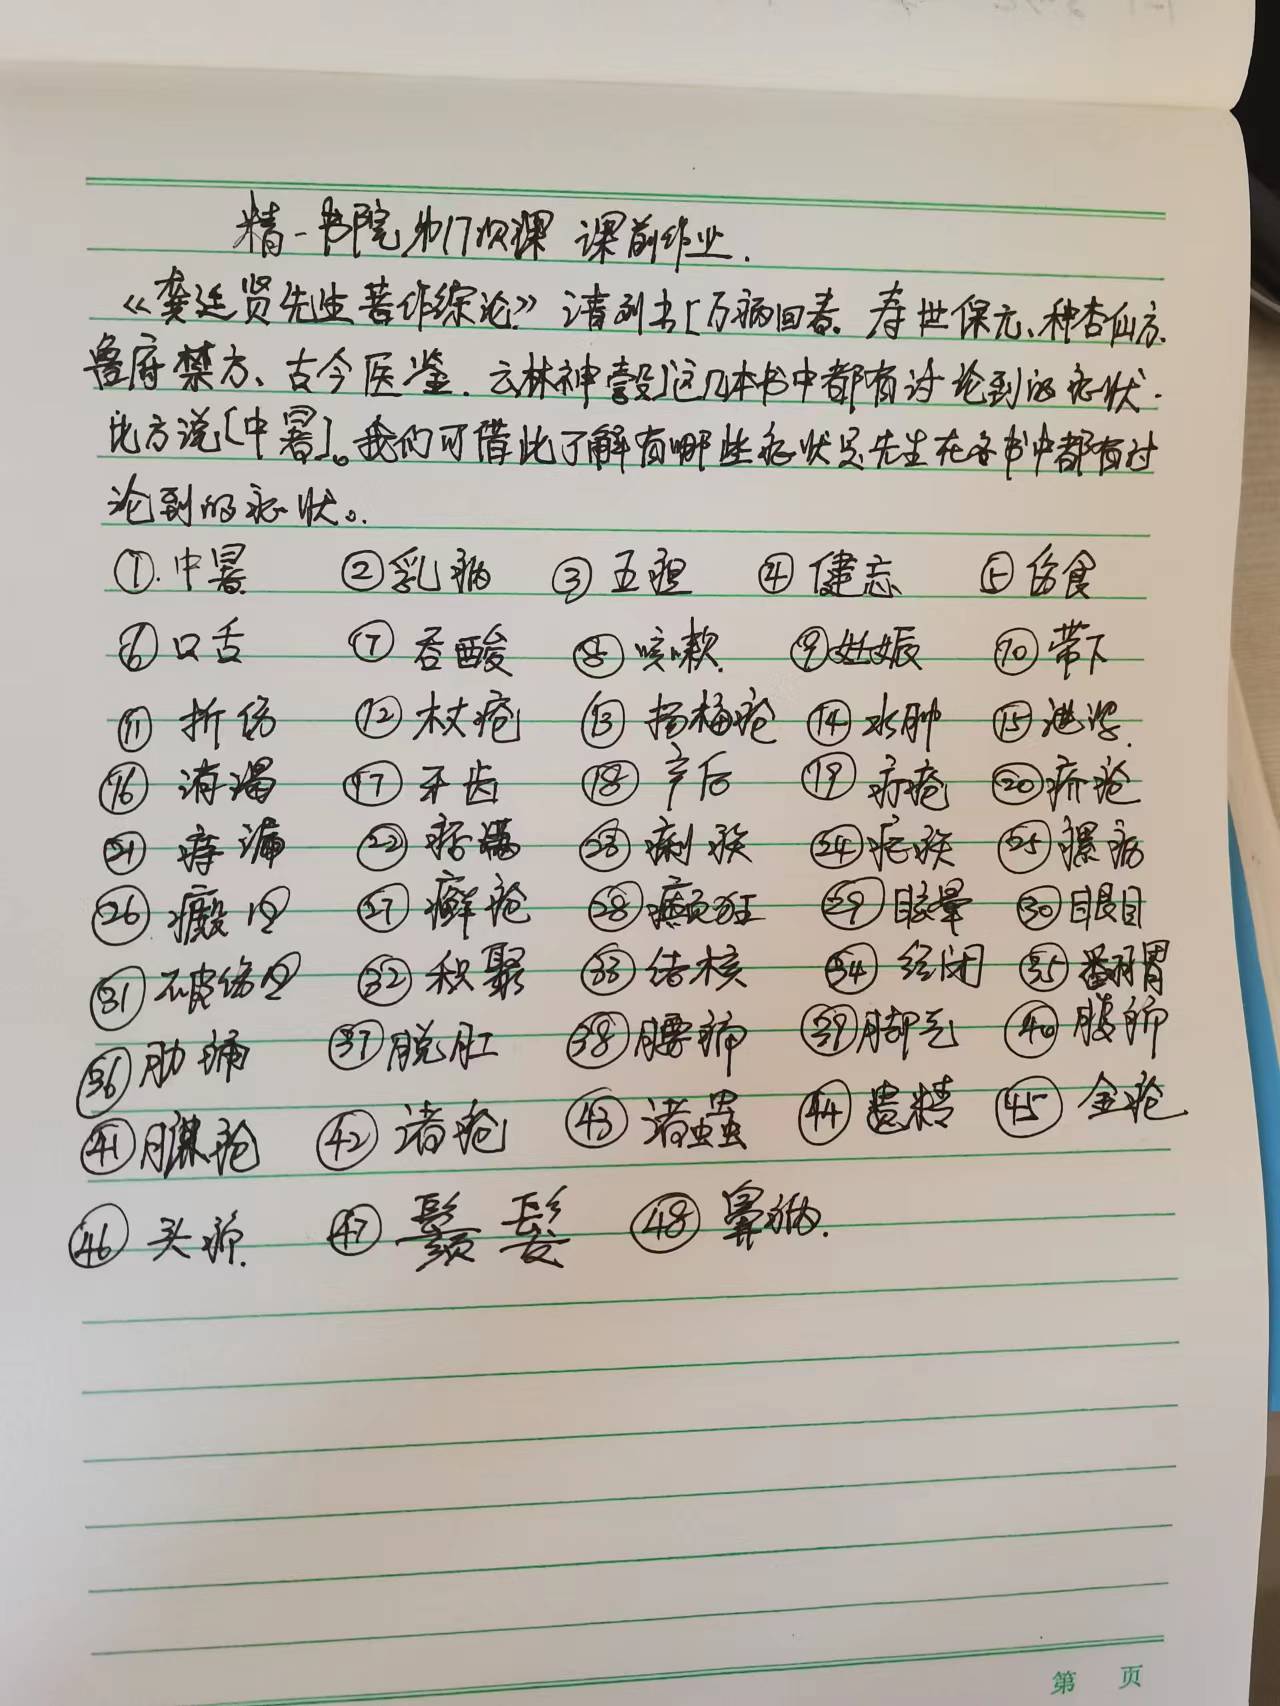 精一书院第17次课 课前作业.
《龚廷贤先生著作综论》请列出[万病回春、寿世保元、种杏仙方、
鲁府禁方、古今医鉴、云林神彀]这几本书中都有讨论到的症状.
比方说[中暑]。我们可借此了解有哪些症状是先生在各书中都有讨
论到的症状。
①.中暑 ②乳病 ③五疸 ④健忘 ⑤伤食
⑥口舌 ⑦吞酸 ⑧咳嗽 ⑨妊娠 ⑩带下
⑪折伤 ⑫杖疮 ⑬杨梅疮 ⑭水肿 ⑮泄泻
⑯消渴 ⑰牙齿 ⑱产后 ⑲疔疮 ⑳疥疮
㉑痔漏 ㉒痞满 ㉓痢疾 ㉔疟疾 ㉕瘰疬
㉖癜风 ㉗癣疮 ㉘癫狂 ㉙眩晕 ㉚眼目
㉛破伤风 ㉜积聚 ㉝结核 ㉞经闭 ㉟翻胃
㊱肋痛 ㊲脱肛 ㊳腰痛 ㊴脚气 ㊵腹痛
㊶臁疮 ㊷诸疮 ㊸诸虫 ㊹遗精 ㊺金疮
㊻头痛 ㊼鬚髮 ㊽鼻病.
第 页